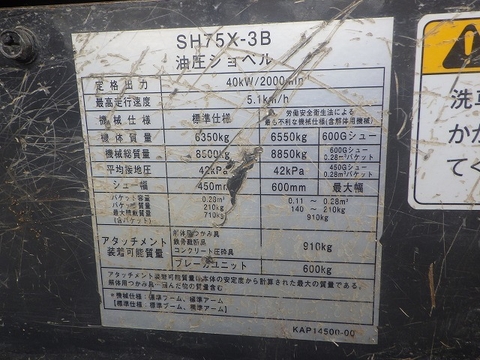 SH75X-3B
油圧ショベル
定格出力 40kW/2000min
最高走行速度 5.1km/h
機械仕様 標準仕様 労働安全衛生法による最も不利な機械仕様(含解体用機械)
機体質量 6350kg 6550kg 600Gシュー
機械総質量 8500kg 8850kg 600Gシュー 0.28m³バケット
平均接地圧 42kPa 42kPa 450Gシュー 0.28m³バケット
シュー幅 450mm 600mm 最大幅
バケット容量 0.28m³ 0.11 ~ 0.28m³
バケット質量 210kg 140 ~ 210kg
最大積載質量 710kg 910kg
(含バケット)
アタッチメント装着可能質量 解体用つかみ具 鉄骨切断具 コンクリート圧砕具 910kg
ブレーカユニット 600kg
アタッチメント装着可能質量は本体の安定度から計算された最大の質量である。
解体用つかみ具 掴んだ物の質量含む
*機械仕様:標準ブーム、標準アーム
【標準仕様:標準ブーム、標準アーム】
KAP14500-00
洗車
かか
てく